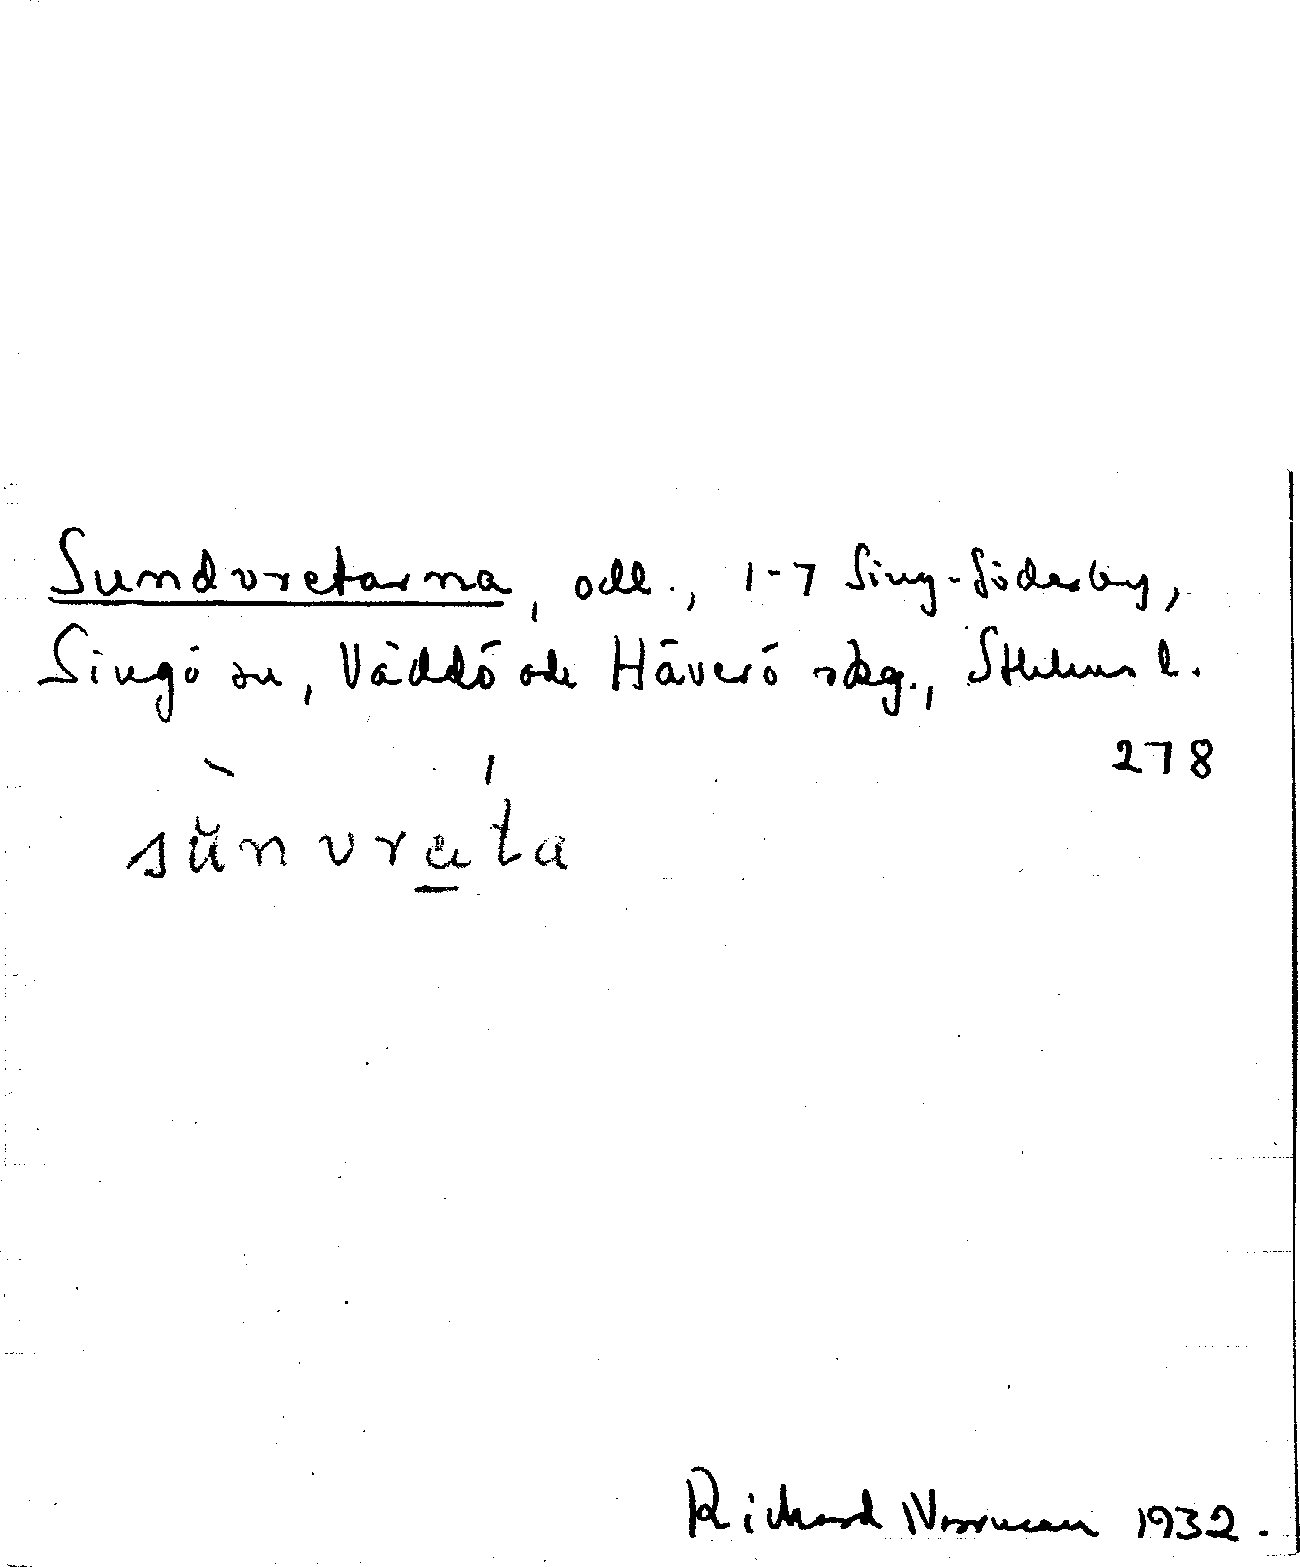 Sundvretarna, odl., 1-7 Sing-Söderby,
Singö sn, Väddö och Häverö skg., Sthlms l.
278
sŭnvreta
Richard Norrman 1932.